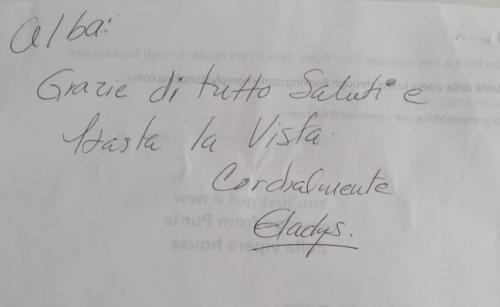 Alba:
Grazie di tutto Saluti e
Hasta la Vista.
Cordialmente
Gladys.